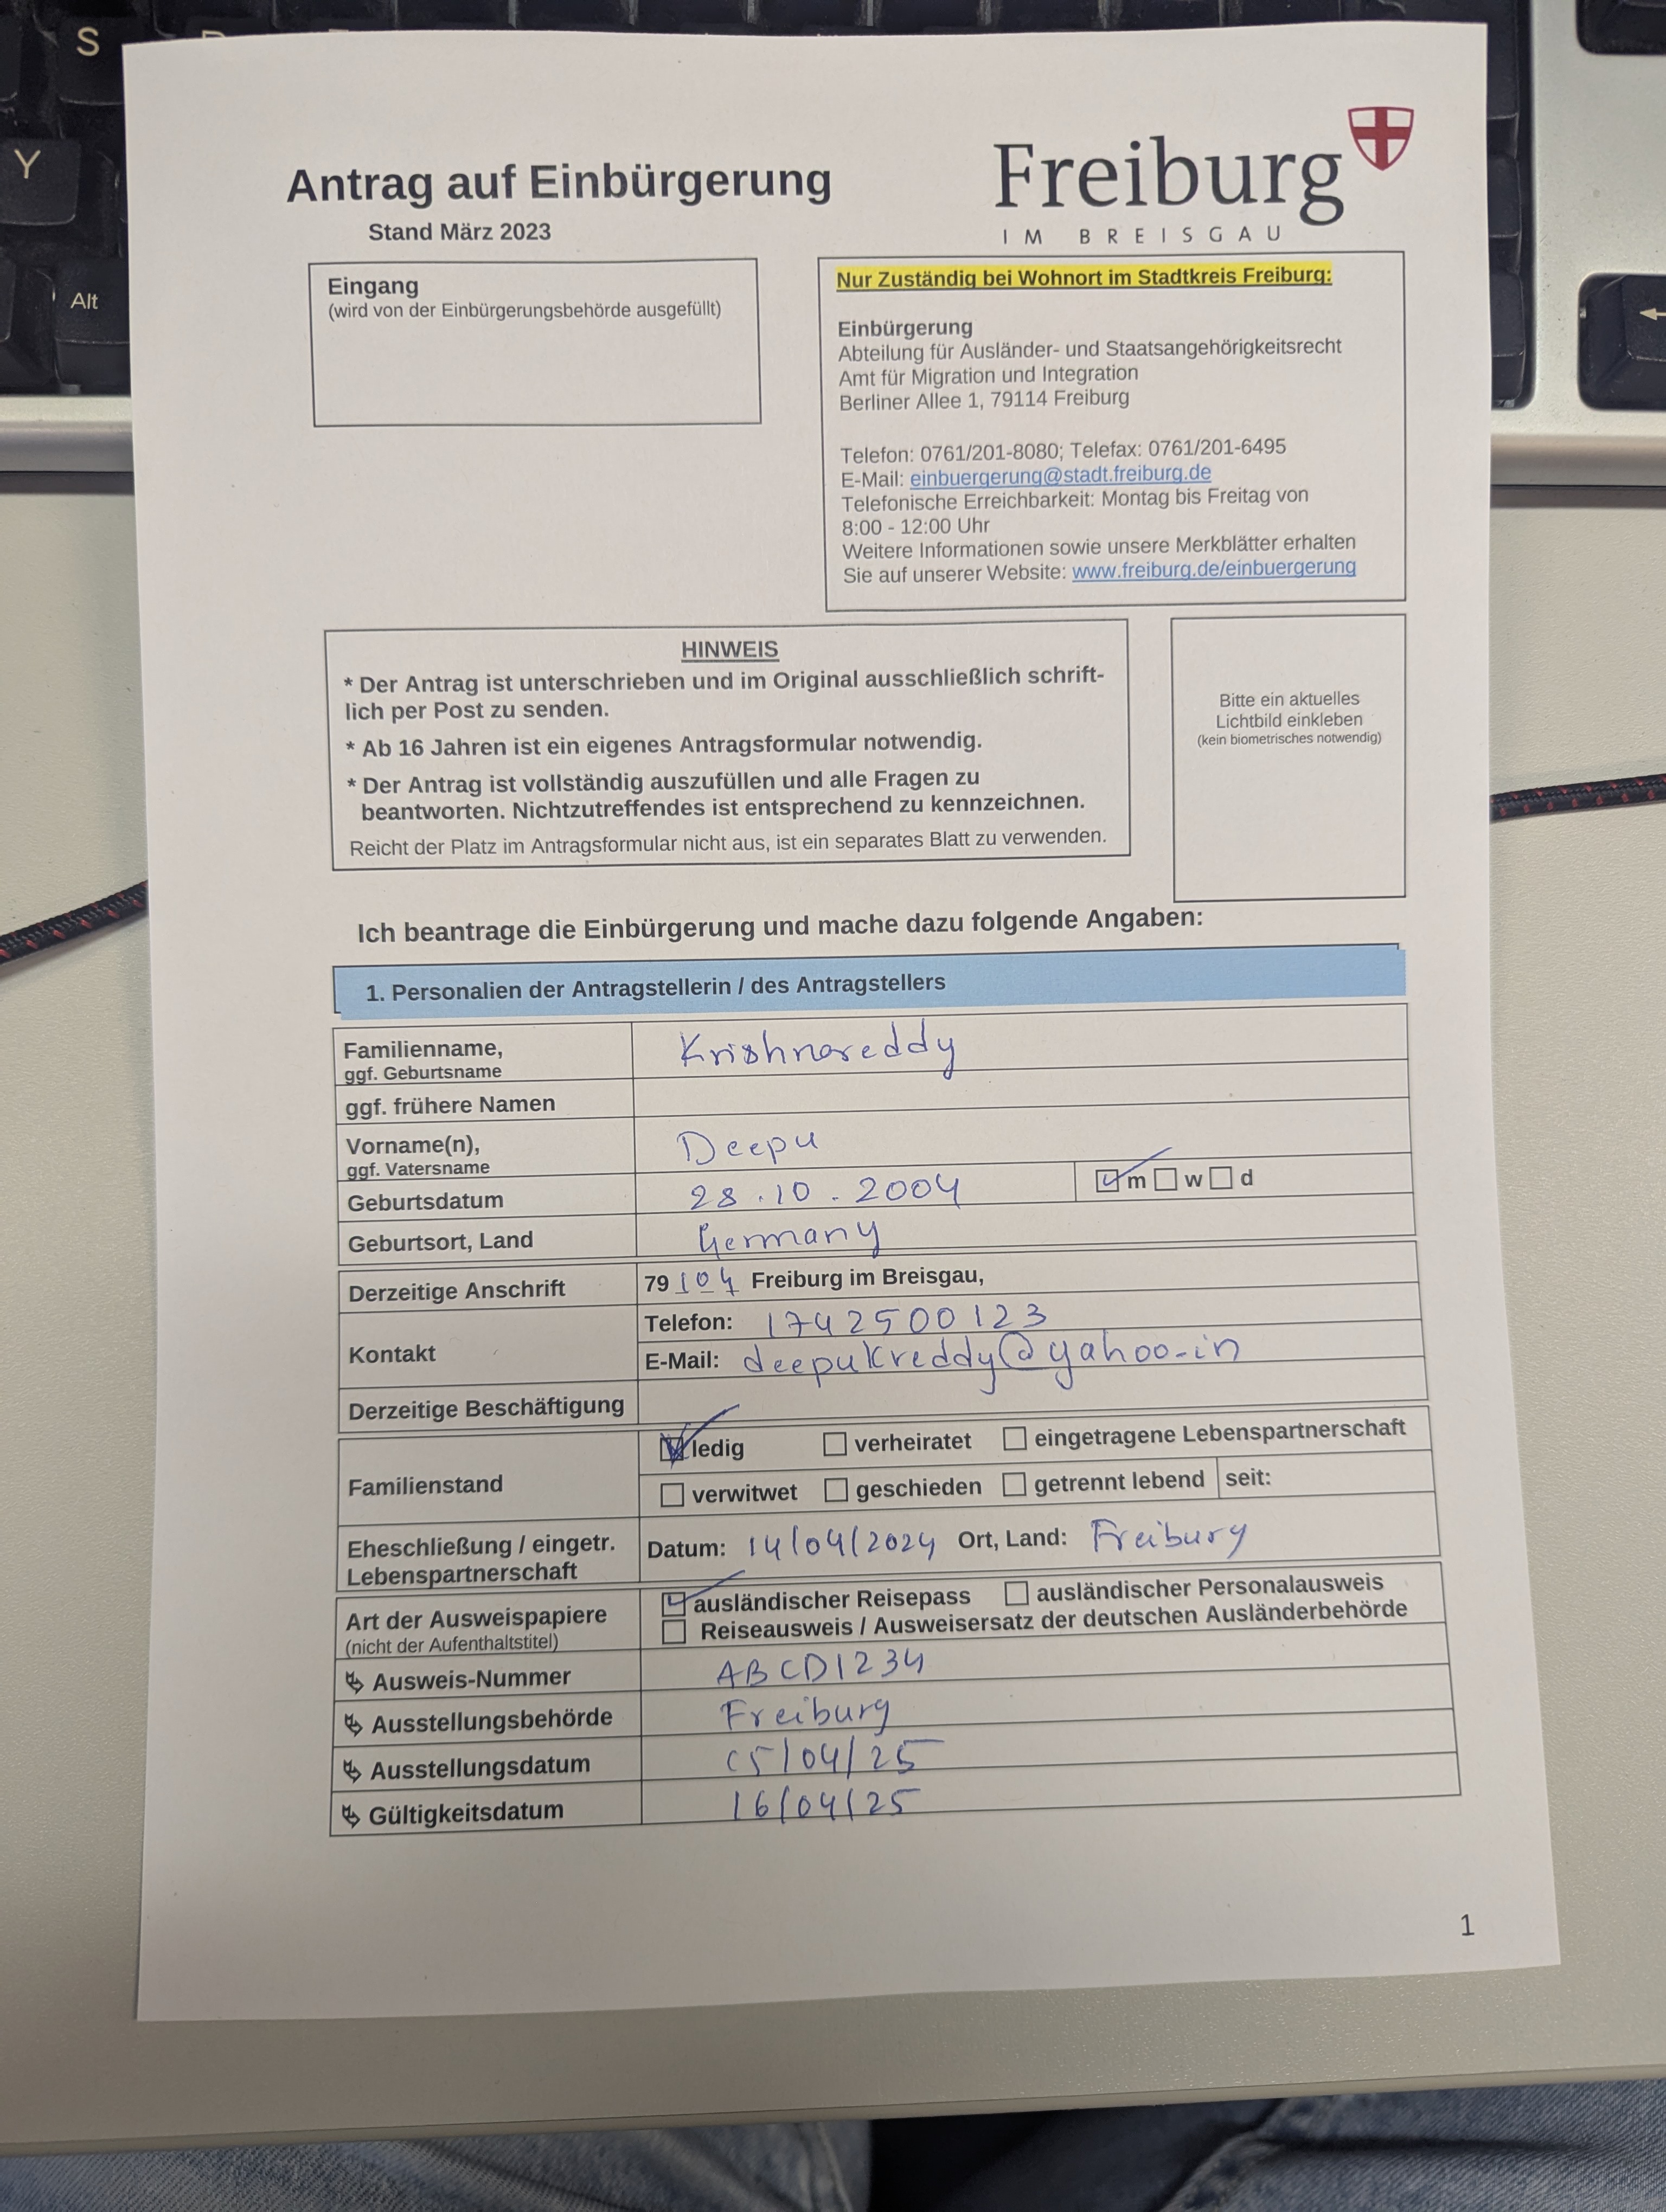 S
Y
Alt
Antrag auf Einbürgerung
Stand März 2023
Freiburg
IM BREISGAU
Eingang
(wird von der Einbürgerungsbehörde ausgefüllt)
Nur Zuständig bei Wohnort im Stadtkreis Freiburg:
Einbürgerung
Abteilung für Ausländer- und Staatsangehörigkeitsrecht
Amt für Migration und Integration
Berliner Allee 1, 79114 Freiburg
Telefon: 0761/201-8080; Telefax: 0761/201-6495
E-Mail: einbuergerung@stadt.freiburg.de
Telefonische Erreichbarkeit: Montag bis Freitag von
8:00 - 12:00 Uhr
Weitere Informationen sowie unsere Merkblätter erhalten
Sie auf unserer Website: www.freiburg.de/einbuergerung
HINWEIS
* Der Antrag ist unterschrieben und im Original ausschließlich schrift-
lich per Post zu senden.
* Ab 16 Jahren ist ein eigenes Antragsformular notwendig.
* Der Antrag ist vollständig auszufüllen und alle Fragen zu
beantworten. Nichtzutreffendes ist entsprechend zu kennzeichnen.
Reicht der Platz im Antragsformular nicht aus, ist ein separates Blatt zu verwenden.
Bitte ein aktuelles
Lichtbild einkleben
(kein biometrisches notwendig)
Ich beantrage die Einbürgerung und mache dazu folgende Angaben:
1. Personalien der Antragstellerin / des Antragstellers
Familienname, Krishnareddy
ggf. Geburtsname
ggf. frühere Namen
Vorname(n), Deepu
ggf. Vatersname
Geburtsdatum 28.10.2004 m w d
Geburtsort, Land Germany
Derzeitige Anschrift 79104 Freiburg im Breisgau,
Kontakt
Telefon: 1742500123
E-Mail: deepukreddy@yahoo.in
Derzeitige Beschäftigung
Familienstand
ledig verheiratet eingetragene Lebenspartnerschaft
verwitwet geschieden getrennt lebend seit:
Eheschließung / eingetr.
Lebenspartnerschaft
Datum: 14/04/2024 Ort, Land: Freiburg
Art der Ausweispapiere
(nicht der Aufenthaltstitel)
ausländischer Reisepass ausländischer Personalausweis
Reiseausweis / Ausweisersatz der deutschen Ausländerbehörde
Ausweis-Nummer ABCD1234
Ausstellungsbehörde Freiburg
Ausstellungsdatum 05/04/25
Gültigkeitsdatum 16/04/25
1